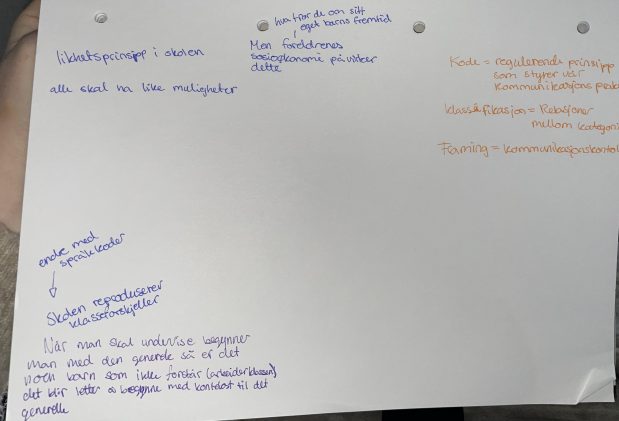 hva tror de om sitt
eget barns fremtid
likhetsprinsipp i skolen
Men foreldrenes
sosioøkonomi påvirker
dette
alle skal ha like muligheter
Kode = regulerende prinsipp
som styrer vår
kommunikasjons
klassifikasjon = Relasjoner
mellom
Framing = kommunikasjons
endre med
språkkoder
Skolen reproduserer
klasseforskjeller
Når man skal undervise begynner
man med den generelle så er det
noen barn som ikke forstår (arbeiderklassen)
det blir letter å begynne med kontekst til det
generelle